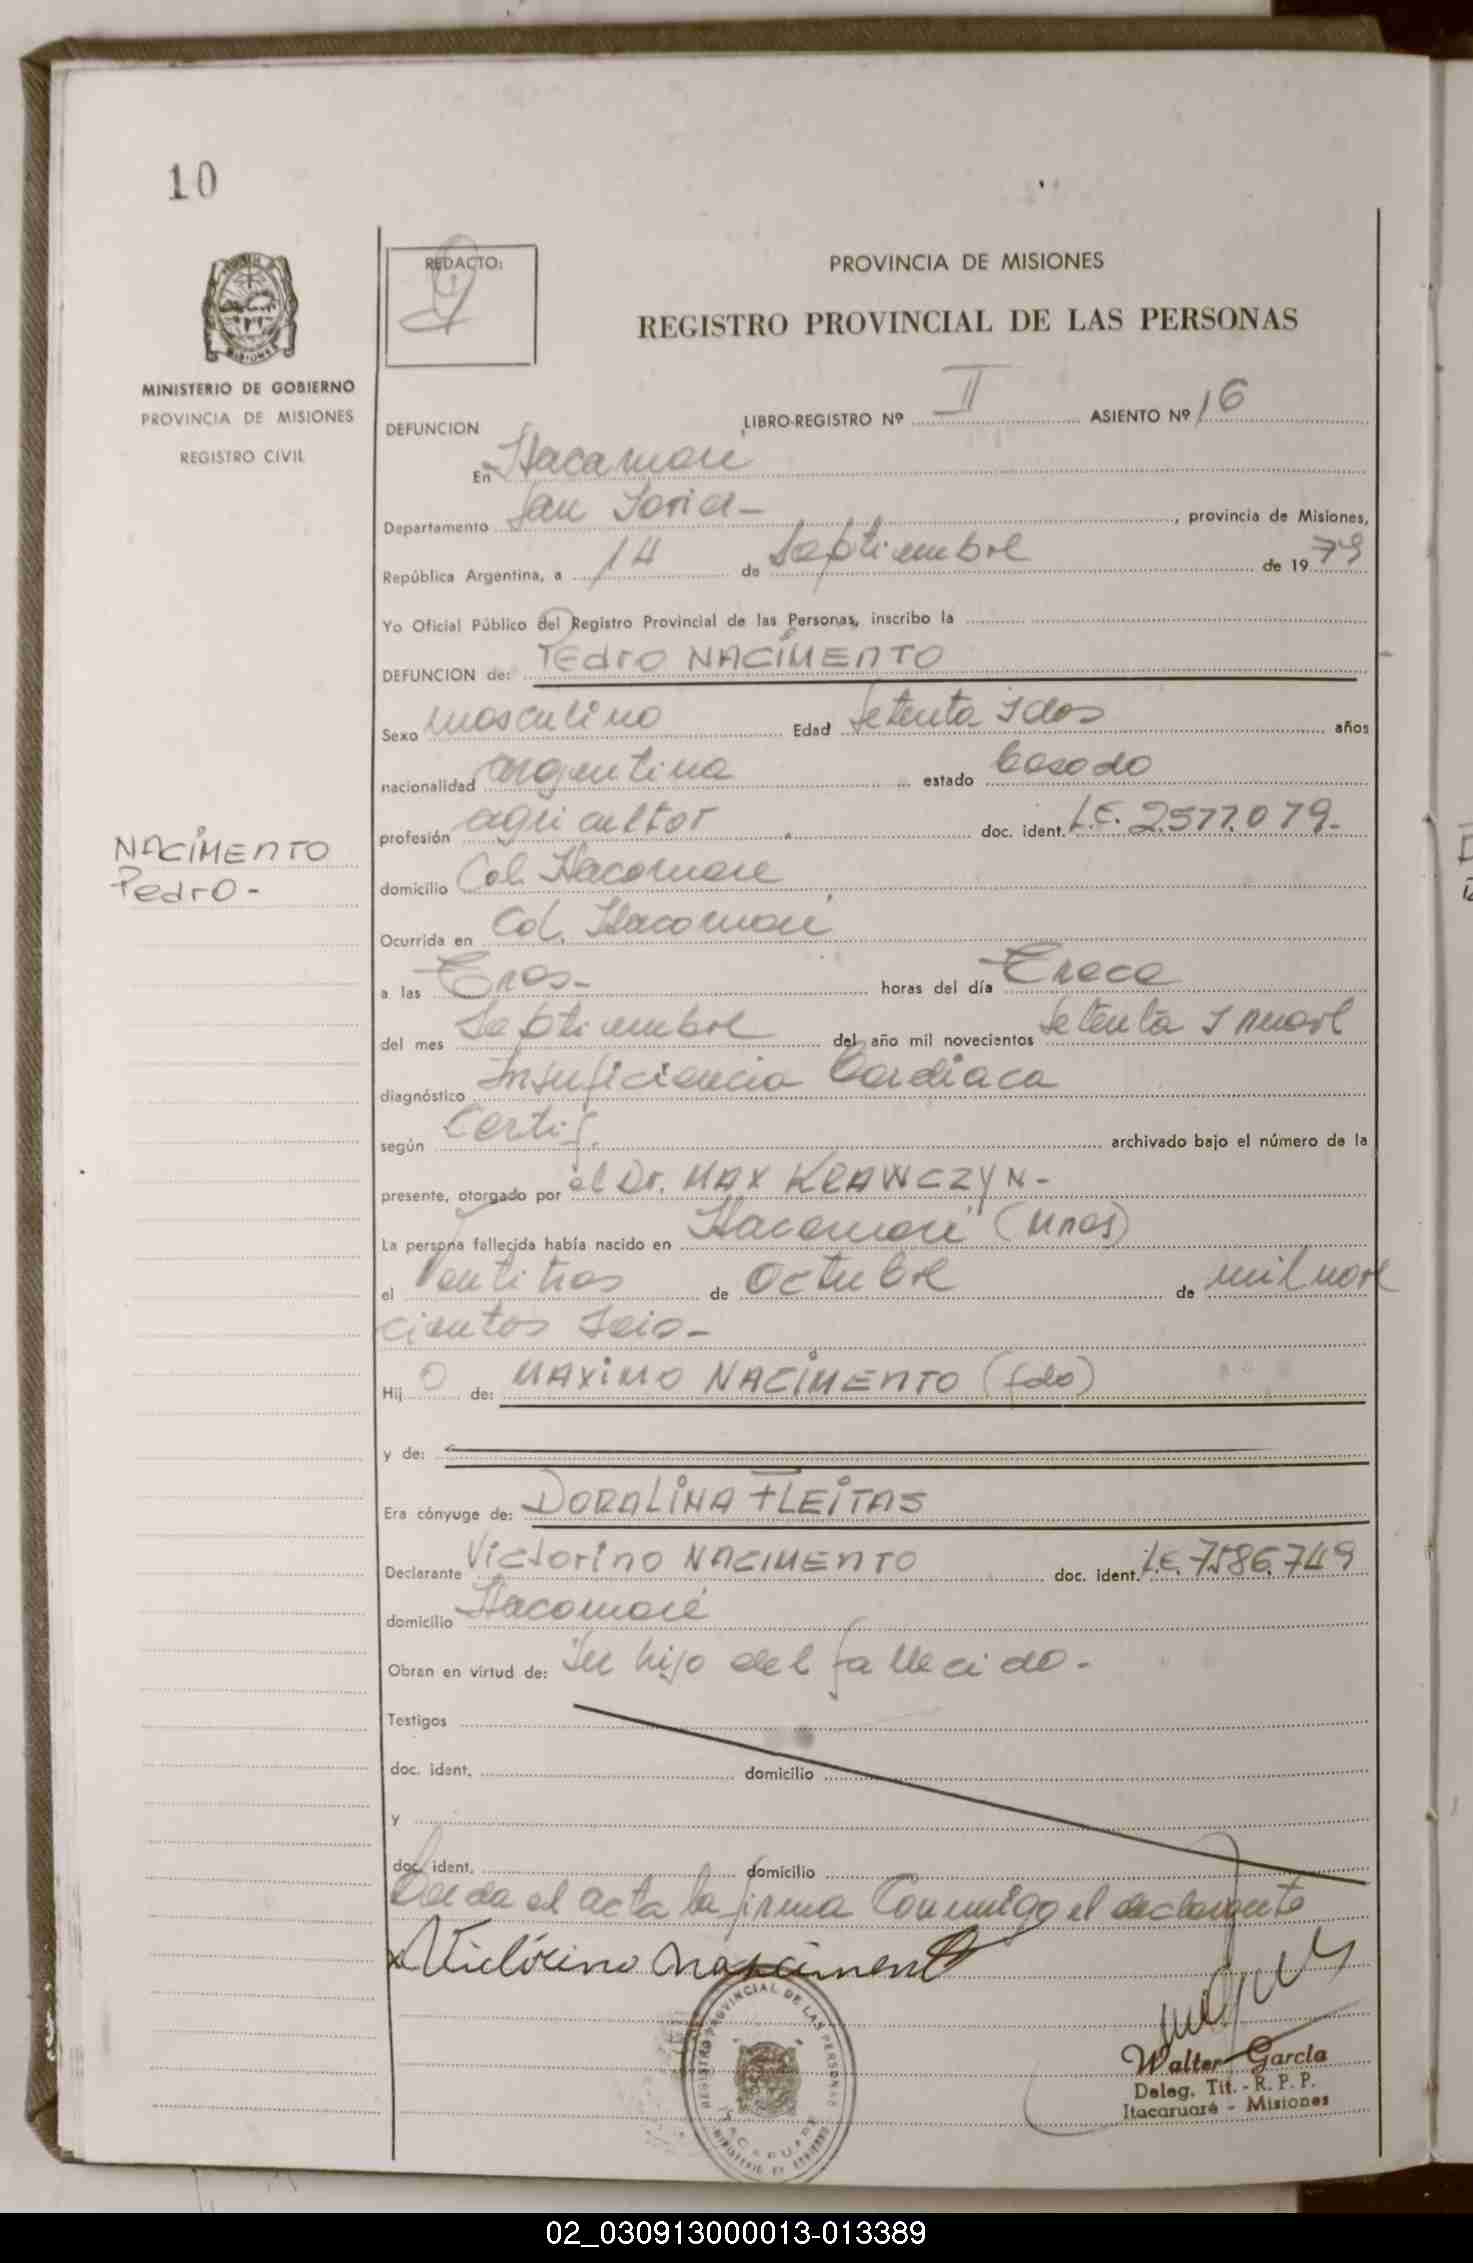 10
REDACTO:
PROVINCIA DE MISIONES
REGISTRO PROVINCIAL DE LAS PERSONAS
MISIONES
MINISTERIO DE GOBIERNO
PROVINCIA DE MISIONES
REGISTRO CIVIL
DEFUNCION LIBRO-REGISTRO Nº II ASIENTO Nº 16
En Itacaruaré
Departamento San Javier- , provincia de Misiones,
República Argentina, a 14 de Septiembre de 19 79
Yo Oficial Público del Registro Provincial de las Personas, inscribo la
DEFUNCION de: Pedro NACIMENTO
Sexo masculino Edad Setenta y dos años
nacionalidad argentina estado Casado
profesión agricultor doc. ident. L.E. 2.577.079.-
NACIMENTO
Pedro-
domicilio Col. Itacaruaré
Ocurrida en Col. Itacaruaré
a las Tres- horas del día Trece
del mes Septiembre del año mil novecientos Setenta y nueve
diagnóstico Insuficiencia Cardiaca
según Certif. archivado bajo el número de la
presente, otorgado por el Dr. MAX KRAWCZYN-
La persona fallecida había nacido en Itacaruaré (Mnes)
el Ventitres de Octubre de mil nove
cientos Seis-
Hij o de: MAXIMO NACIMENTO (fdo)
y de:
Era cónyuge de: DORALINA FLEITAS
Declarante Victorino NACIMENTO doc. ident. L.E. 7.586.749
domicilio Itacaruaré
Obran en virtud de: Ser hijo del fallecido.-
Testigos
doc. ident. domicilio
y
doc. ident. domicilio
Leida el acta la firma Conmigo el declarante
x Victorino Nascimento
REGISTRO PROVINCIAL DE LAS PERSONAS
ITACARUARE
MINISTERIO DE GOBIERNO
Walter Garcia
Deleg. Tit. - R. P. P.
Itacaruaré - Misiones
02_030913000013-013389